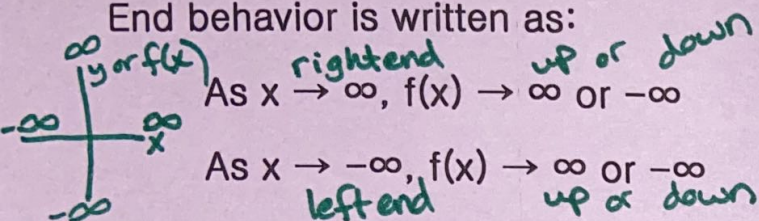 End behavior is written as:
∞
y or f(x)
right end
up or down
As x → ∞, f(x) → ∞ or -∞
-∞
∞
x
As x → -∞, f(x) → ∞ or -∞
-∞
left end
up or down